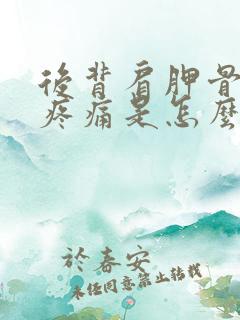 後背肩胛骨
疼痛是怎麼
於春安
未经同意禁止转载